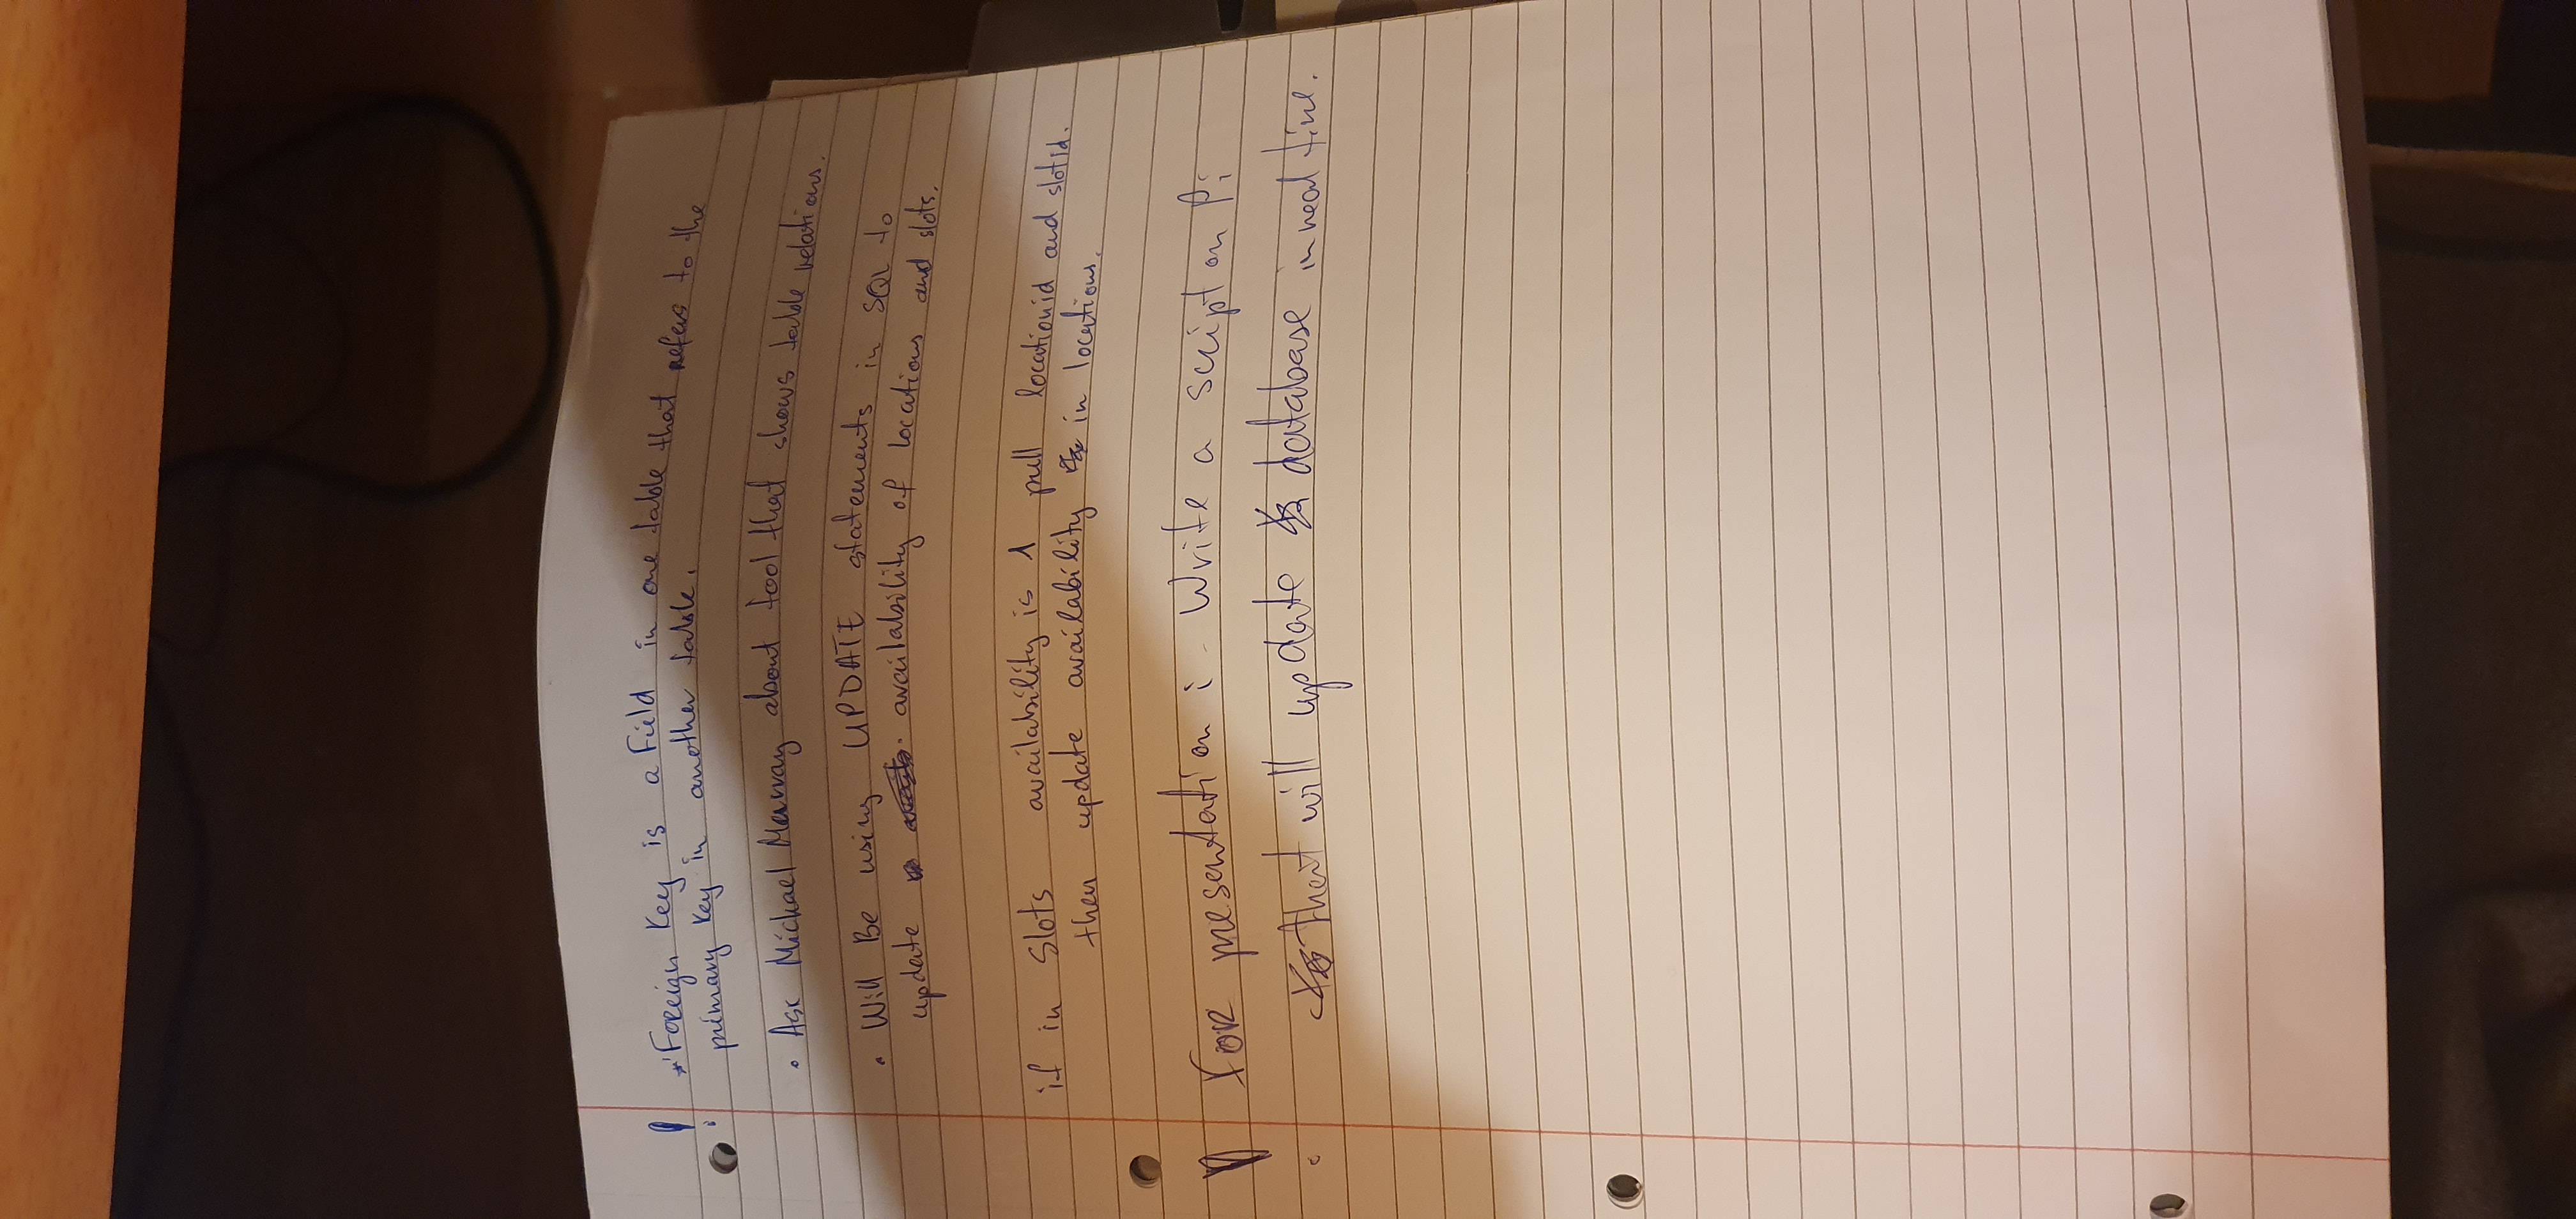 ! *Foreign Key is a Field in one table that refers to the
primary Key in another table.
• Ask Michael Murray about tool that shows table relations.
• Will Be using UPDATE statements in SQL to
update availability of locations and slots.
if in Slots availability is 1 pull locationid and slotid.
then update availability in locations.
! For presentation : - Write a script on Pi
that will update database in real time.